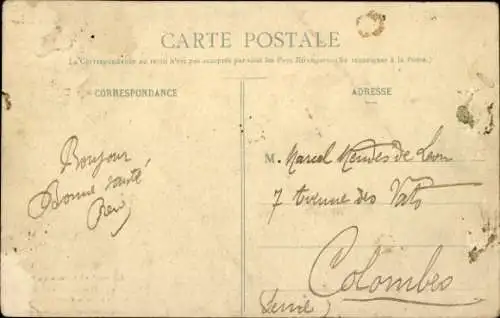 CARTE POSTALE
(La Correspondance au recto n'est pas acceptée par tous les Pays Etrangers. Se renseigner à la Poste.)
CORRESPONDANCE
ADRESSE
Bonjour
Bonne santé
M. Marcel Mendes de Leon
7 Avenue des
Colombes
(Seine)